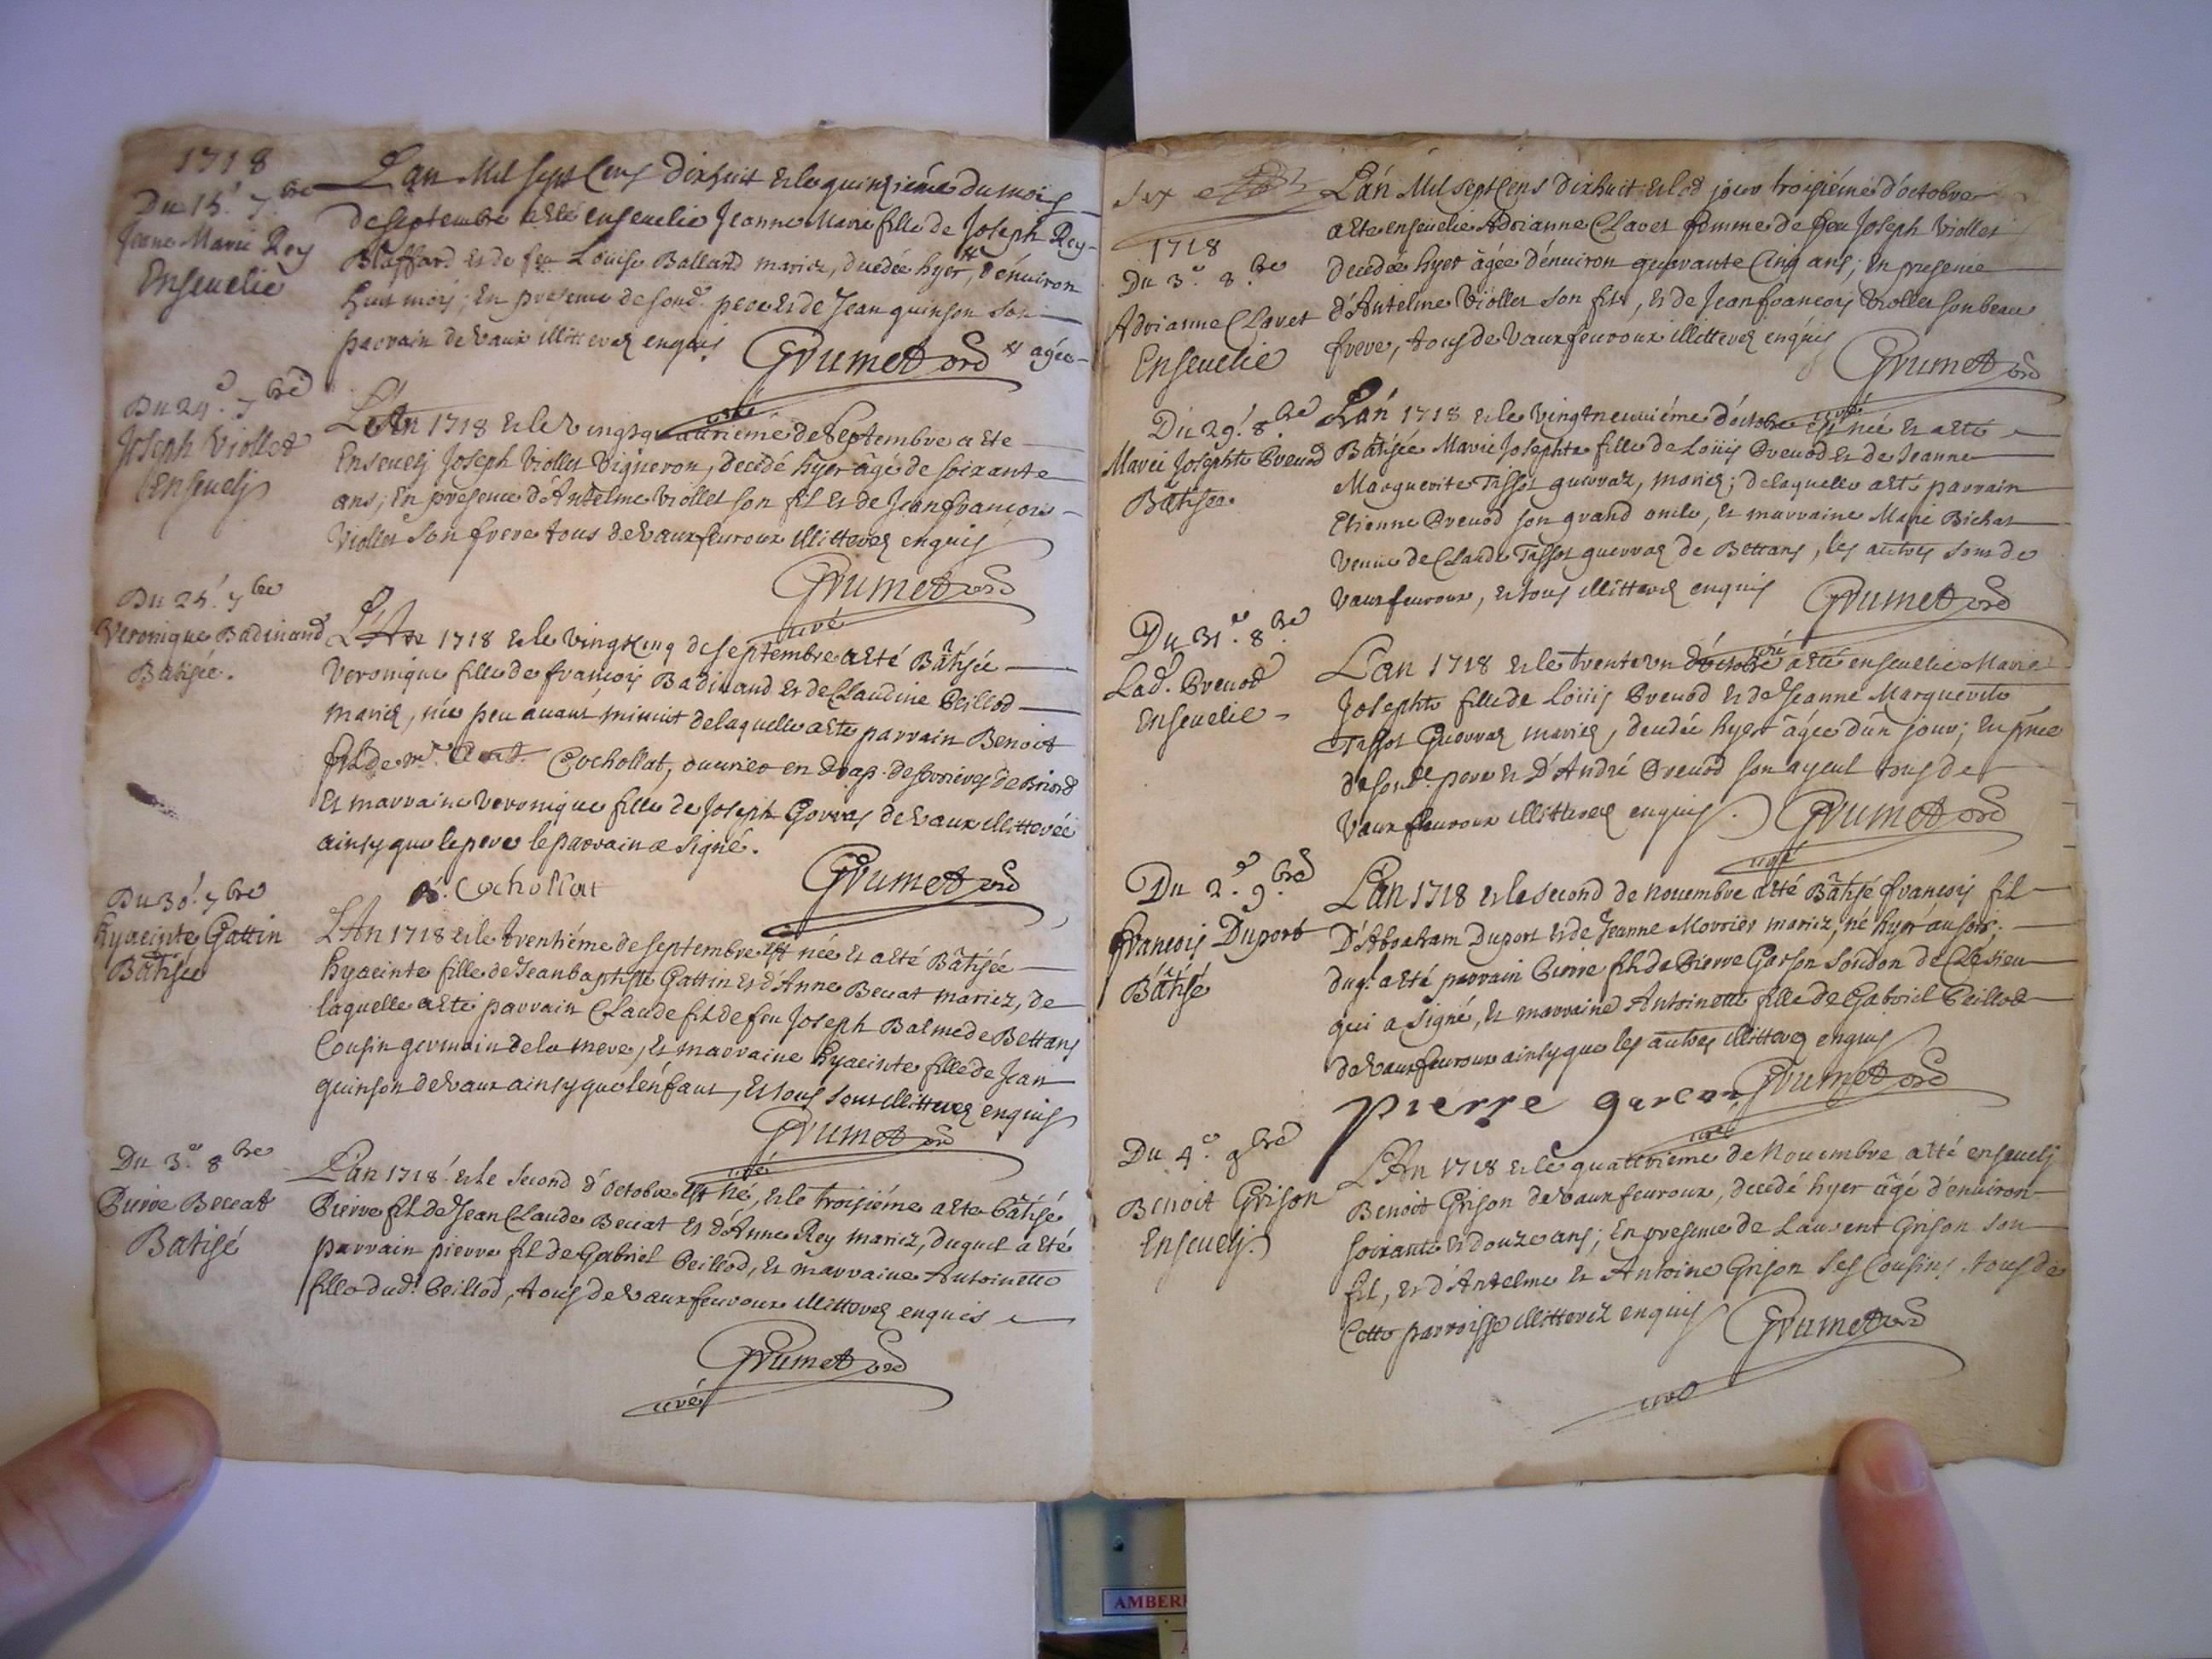 1718
Du 15.e 7.bre
Jeane Marie Rey
Enseuelie
Lan Mil sept Cens dixhuit & le quinzieme du mois
de septembre a esté enseuelie Jeanne Marie fille de Joseph Rey
Blaffard & de feu Louise Balland mariez, decedée hyer, # d'énuiron
huit mois; En presence de sond. pere & de Jean quinson son
parrain de Vaux illitterez enquis # agée
Grumet
curé
Du 24.e 7.bre
Joseph Viollet
Enseuely
L'An 1718 & le Vingtquatrieme de septembre a esté
Enseuely Joseph Viollet Vigneron, decedé hyer âgé de soixante
ans; En presence d'Antelme Viollet son fil & de Jean françois
Viollet son frere tous de Vauxfeuroux illitterez enquis
Grumet
curé
Du 25.e 7.bre
Veronique Badinand
Batisée.
L'An 1718 & le Vingtcinq de septembre a esté Bâtisée
Veronique fille de françois Badinand & de Claudine Peillod
mariez, née peu auant minuit de laquelle a esté parrain Benoit
fil de Cochollat, ouurier en drap de Briord
& marraine Veronique fille de Joseph Gorras de Vaux illitterée
ainsy que le pere le parrain a signé.
B. Cochollat
Grumet
Du 30.e 7.bre
hyacinte Gattin
Bâtisée
L'An 1718 & le trentiéme de septembre est née & a esté Bâtisée
hyacinte fille de Jean baptiste Gattin & d'Anne Beccat mariez, de
laquelle a esté parrain Claude fil de feu Joseph Balme de Bettans
Cousin germain de la mere, & marraine hyacinte fille de Jean
quinson de Vaux ainsy que l'énfant, & tous sont illitterez enquis
Grumet
curé
Du 3.e 8.bre
Pierre Beccat
Batisé
L'an 1718 & le second d'octobre est né, & le troisiéme a esté bâtisé
Pierre fil de Jean Claude Beccat & d'Anne Rey mariez, duquel a esté
parrain pierre fil de Gabriel Peillod, & marraine Antoinette
fille dud. Peillod, tous de Vauxfeuroux illitterez enquis
Grumet
curé
Six
1718
Du 3.e 8.bre
Adrianne Clavet
Enseuelie
L'an Mil sept Cens dixhuit & led. jour troisiéme d'octobre
a esté enseuelie Adrianne Clavet femme de feu Joseph Viollet
decedée hyer âgée d'énuiron quarante Cinq ans; En presence
d'Antelme Viollet son fil, & de Jean françois Viollet son beau
frere, tous de Vauxfeuroux illitterez enquis
Grumet
curé
Du 29.e 8.bre
Marie Josephte Preuod
Bâtisée.
L'an 1718 & le Vingtneuuiéme d'octobre est née & a esté
Bâtisée Marie Josephte fille de Loüis Preuod & de Jeanne
Marguerite Tissot guerraz, mariez; de laquelle a esté parrain
Etienne Preuod son grand oncle, & marraine Marie Bichat
Veuue de Claude Tissot guerraz de Bettans, les autres sont de
Vauxfeuroux, & tous illitterez enquis
Grumet
curé
Du 31.e 8.bre
Lad. Preuod
enseuelie
L'an 1718 & le trente vn d'octobre a esté enseuelie Marie
Josephte fille de Loüis Preuod & de Jeanne Marguerite
Tissot Guerraz mariez, decedée hyer âgée d'un jour; En pnce
de sond. pere & D'André Preuod son ayeul tous de
Vauxfeuroux illitterez enquis.
Grumet
curé
Du 2.e 9.bre
francois Duport
Bâtisé
L'an 1718 & le second de Nouembre a esté Bâtisé francois fil
D'Abraham Duport & de Jeanne Morrier mariez, né hyer au soir;
duql. a esté parrain Pierre fil de Pierre Garson
qui a signé, & marraine Antoinette fille de Gabriel Peillod
de Vauxfeuroux ainsy que les autres illitterez enquis
pierre garcon
Grumet
curé
Du 4.e 9.bre
Benoit Grison
Enseuely.
L'An 1718 & le quattrieme de Nouembre a esté enseuely
Benoit Grison de Vauxfeuroux, decedé hyer âgé d'enuiron
soixante & douze ans; En presence de Laurent Grison son
fil, & d'Antelme & Antoine Grison ses Cousins, tous de
Cette parroisse illitterez enquis
Grumet
curé
AMBER